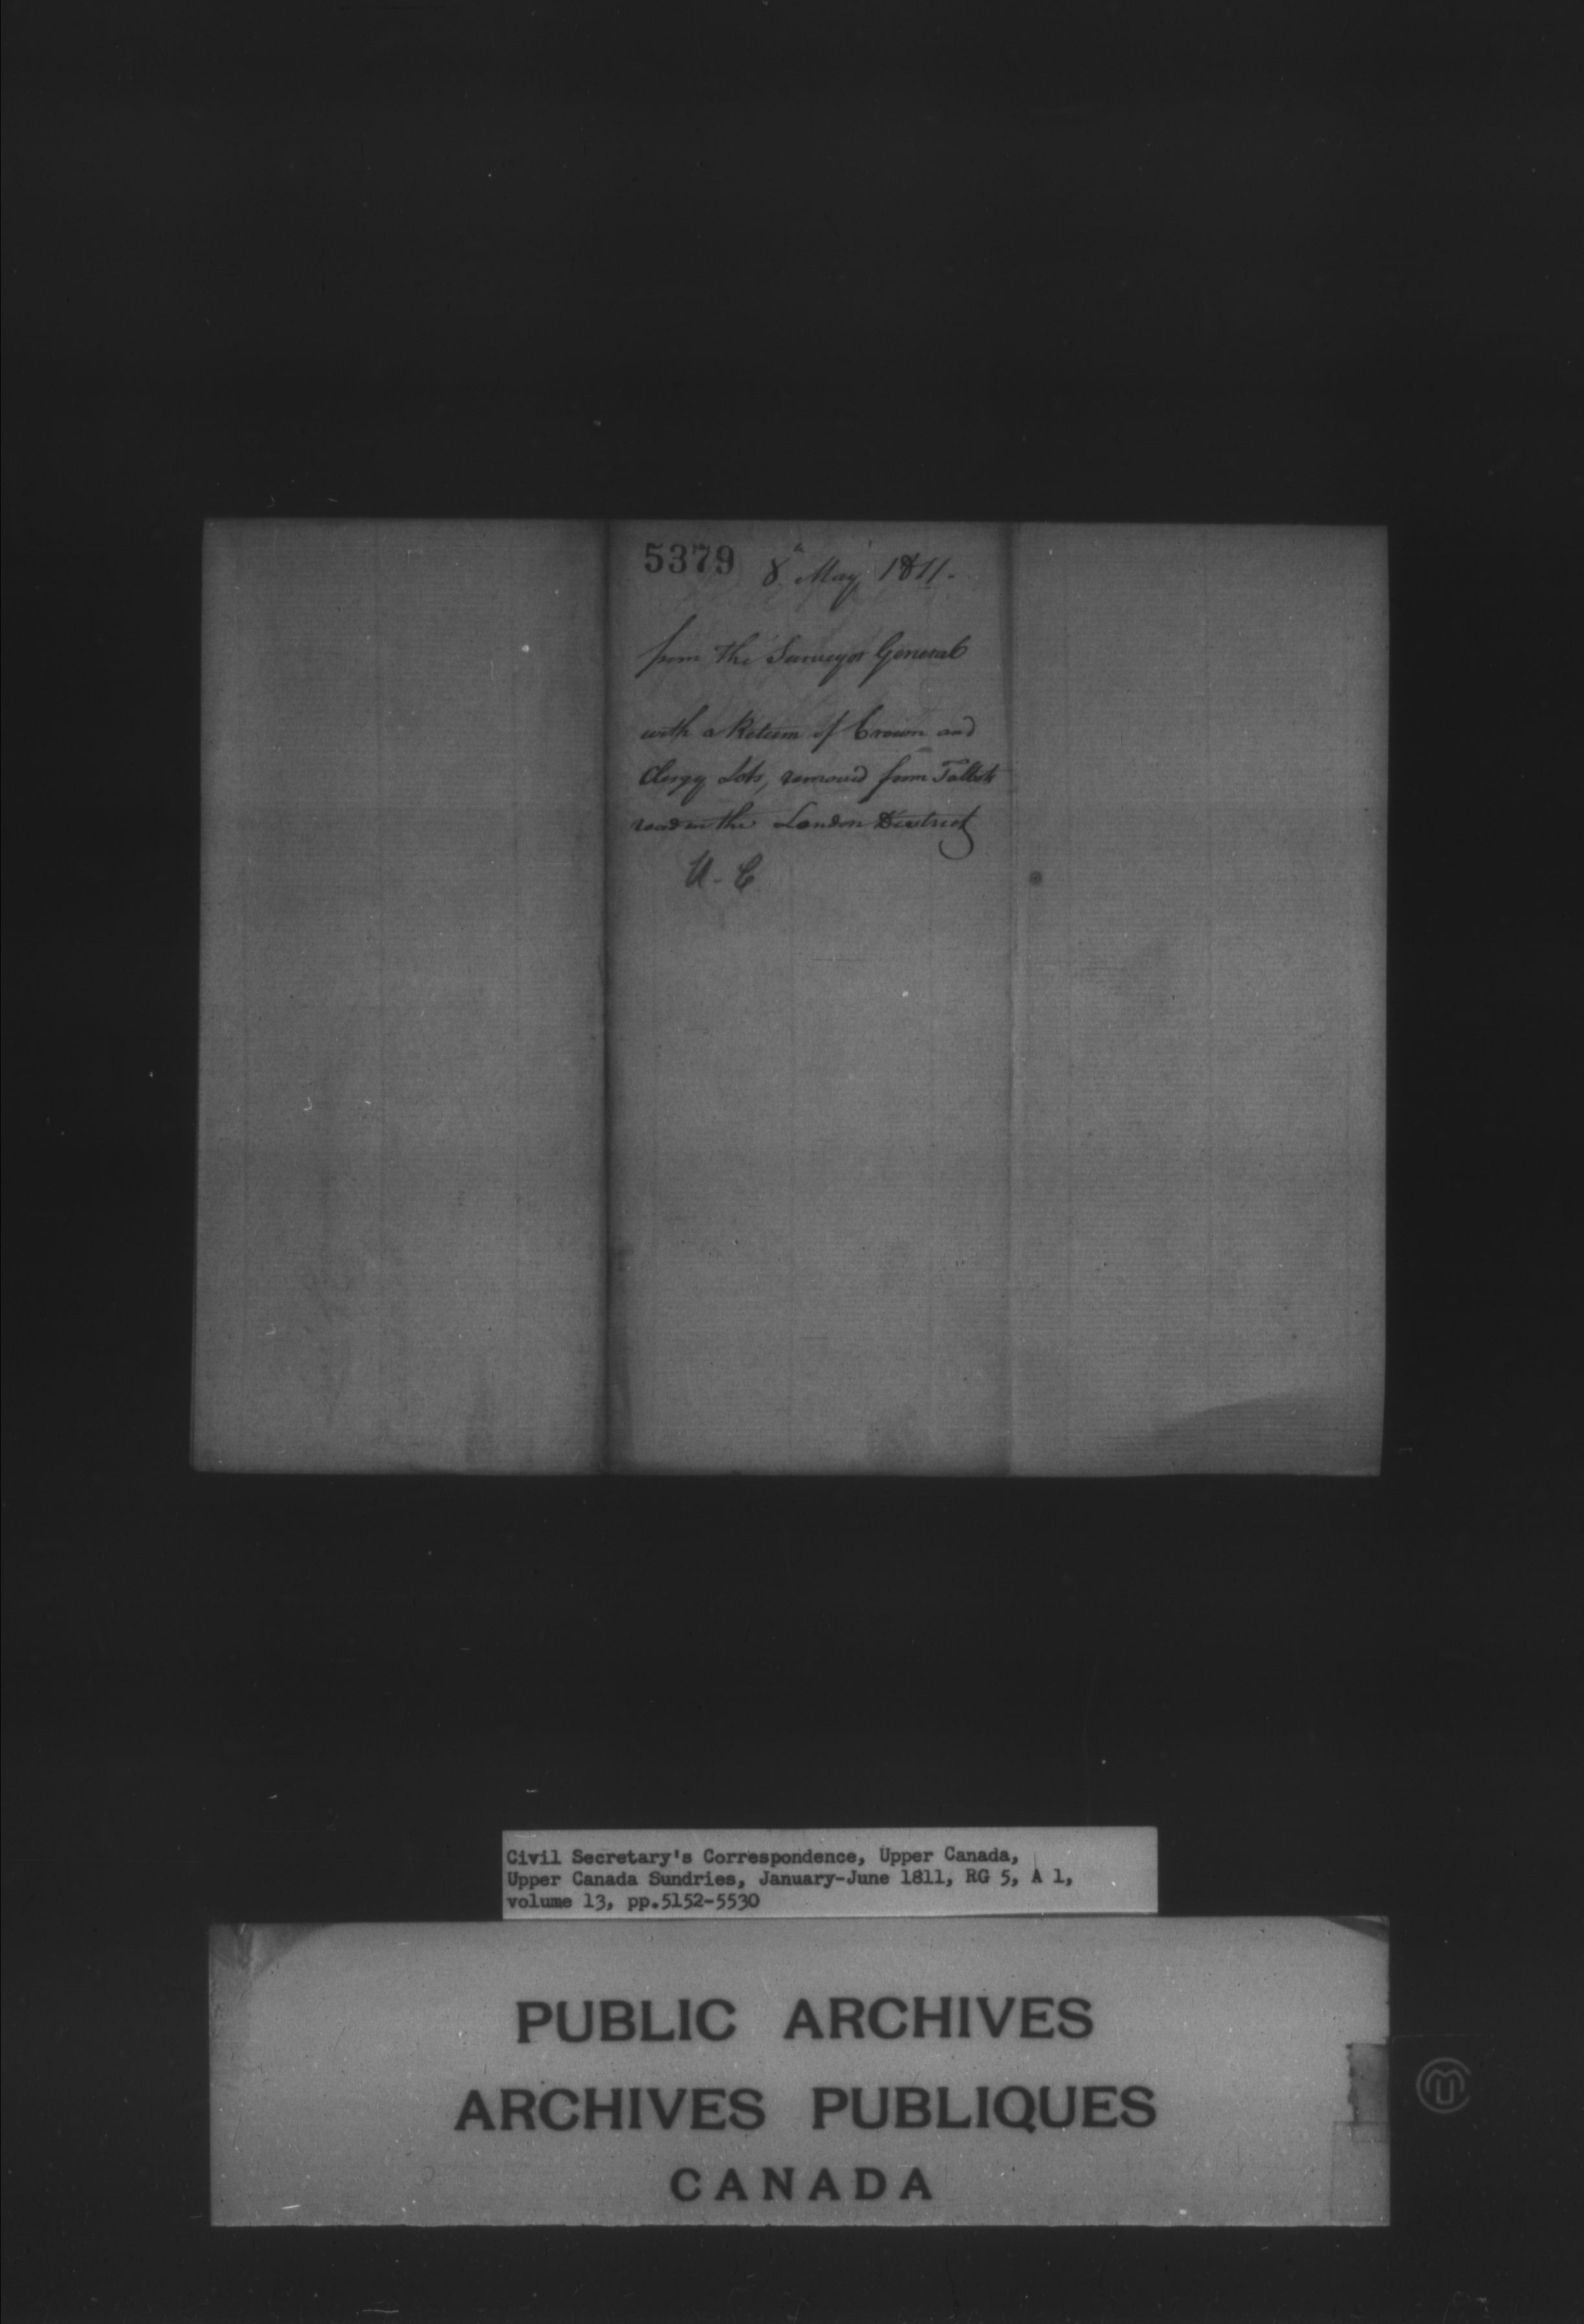 5379 8th May 1811.
from the Surveyor General
with a Return of Crown and
Clergy Lots, removed from Talbots
road in the London District
U. C
Civil Secretary's Correspondence, Upper Canada,
Upper Canada Sundries, January-June 1811, RG 5, A 1,
volume 13, pp.5152-5530
PUBLIC ARCHIVES
ARCHIVES PUBLIQUES
CANADA